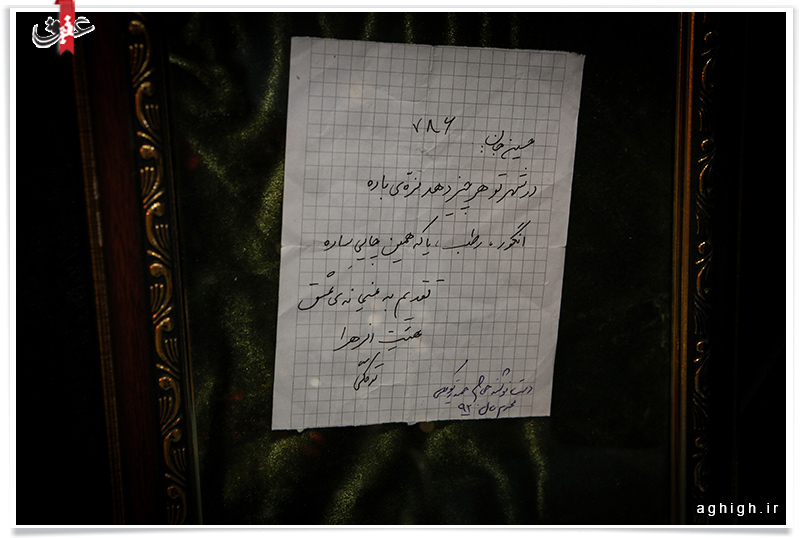 عقیق
۷۸۶
حسین جان:
در شهر تو هر چیز دهد مزه‌ی باده
انگور، رطب، یا که همین چاییِ ساده
تقدیم به خیمه‌ی عشق
هیئت الزهرا
توکلی
دست نوشته حاج
محرم سال ۹۲
aghigh.ir